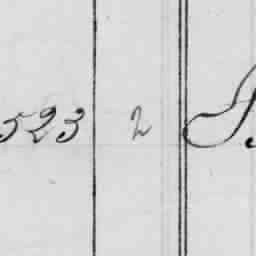 523 2